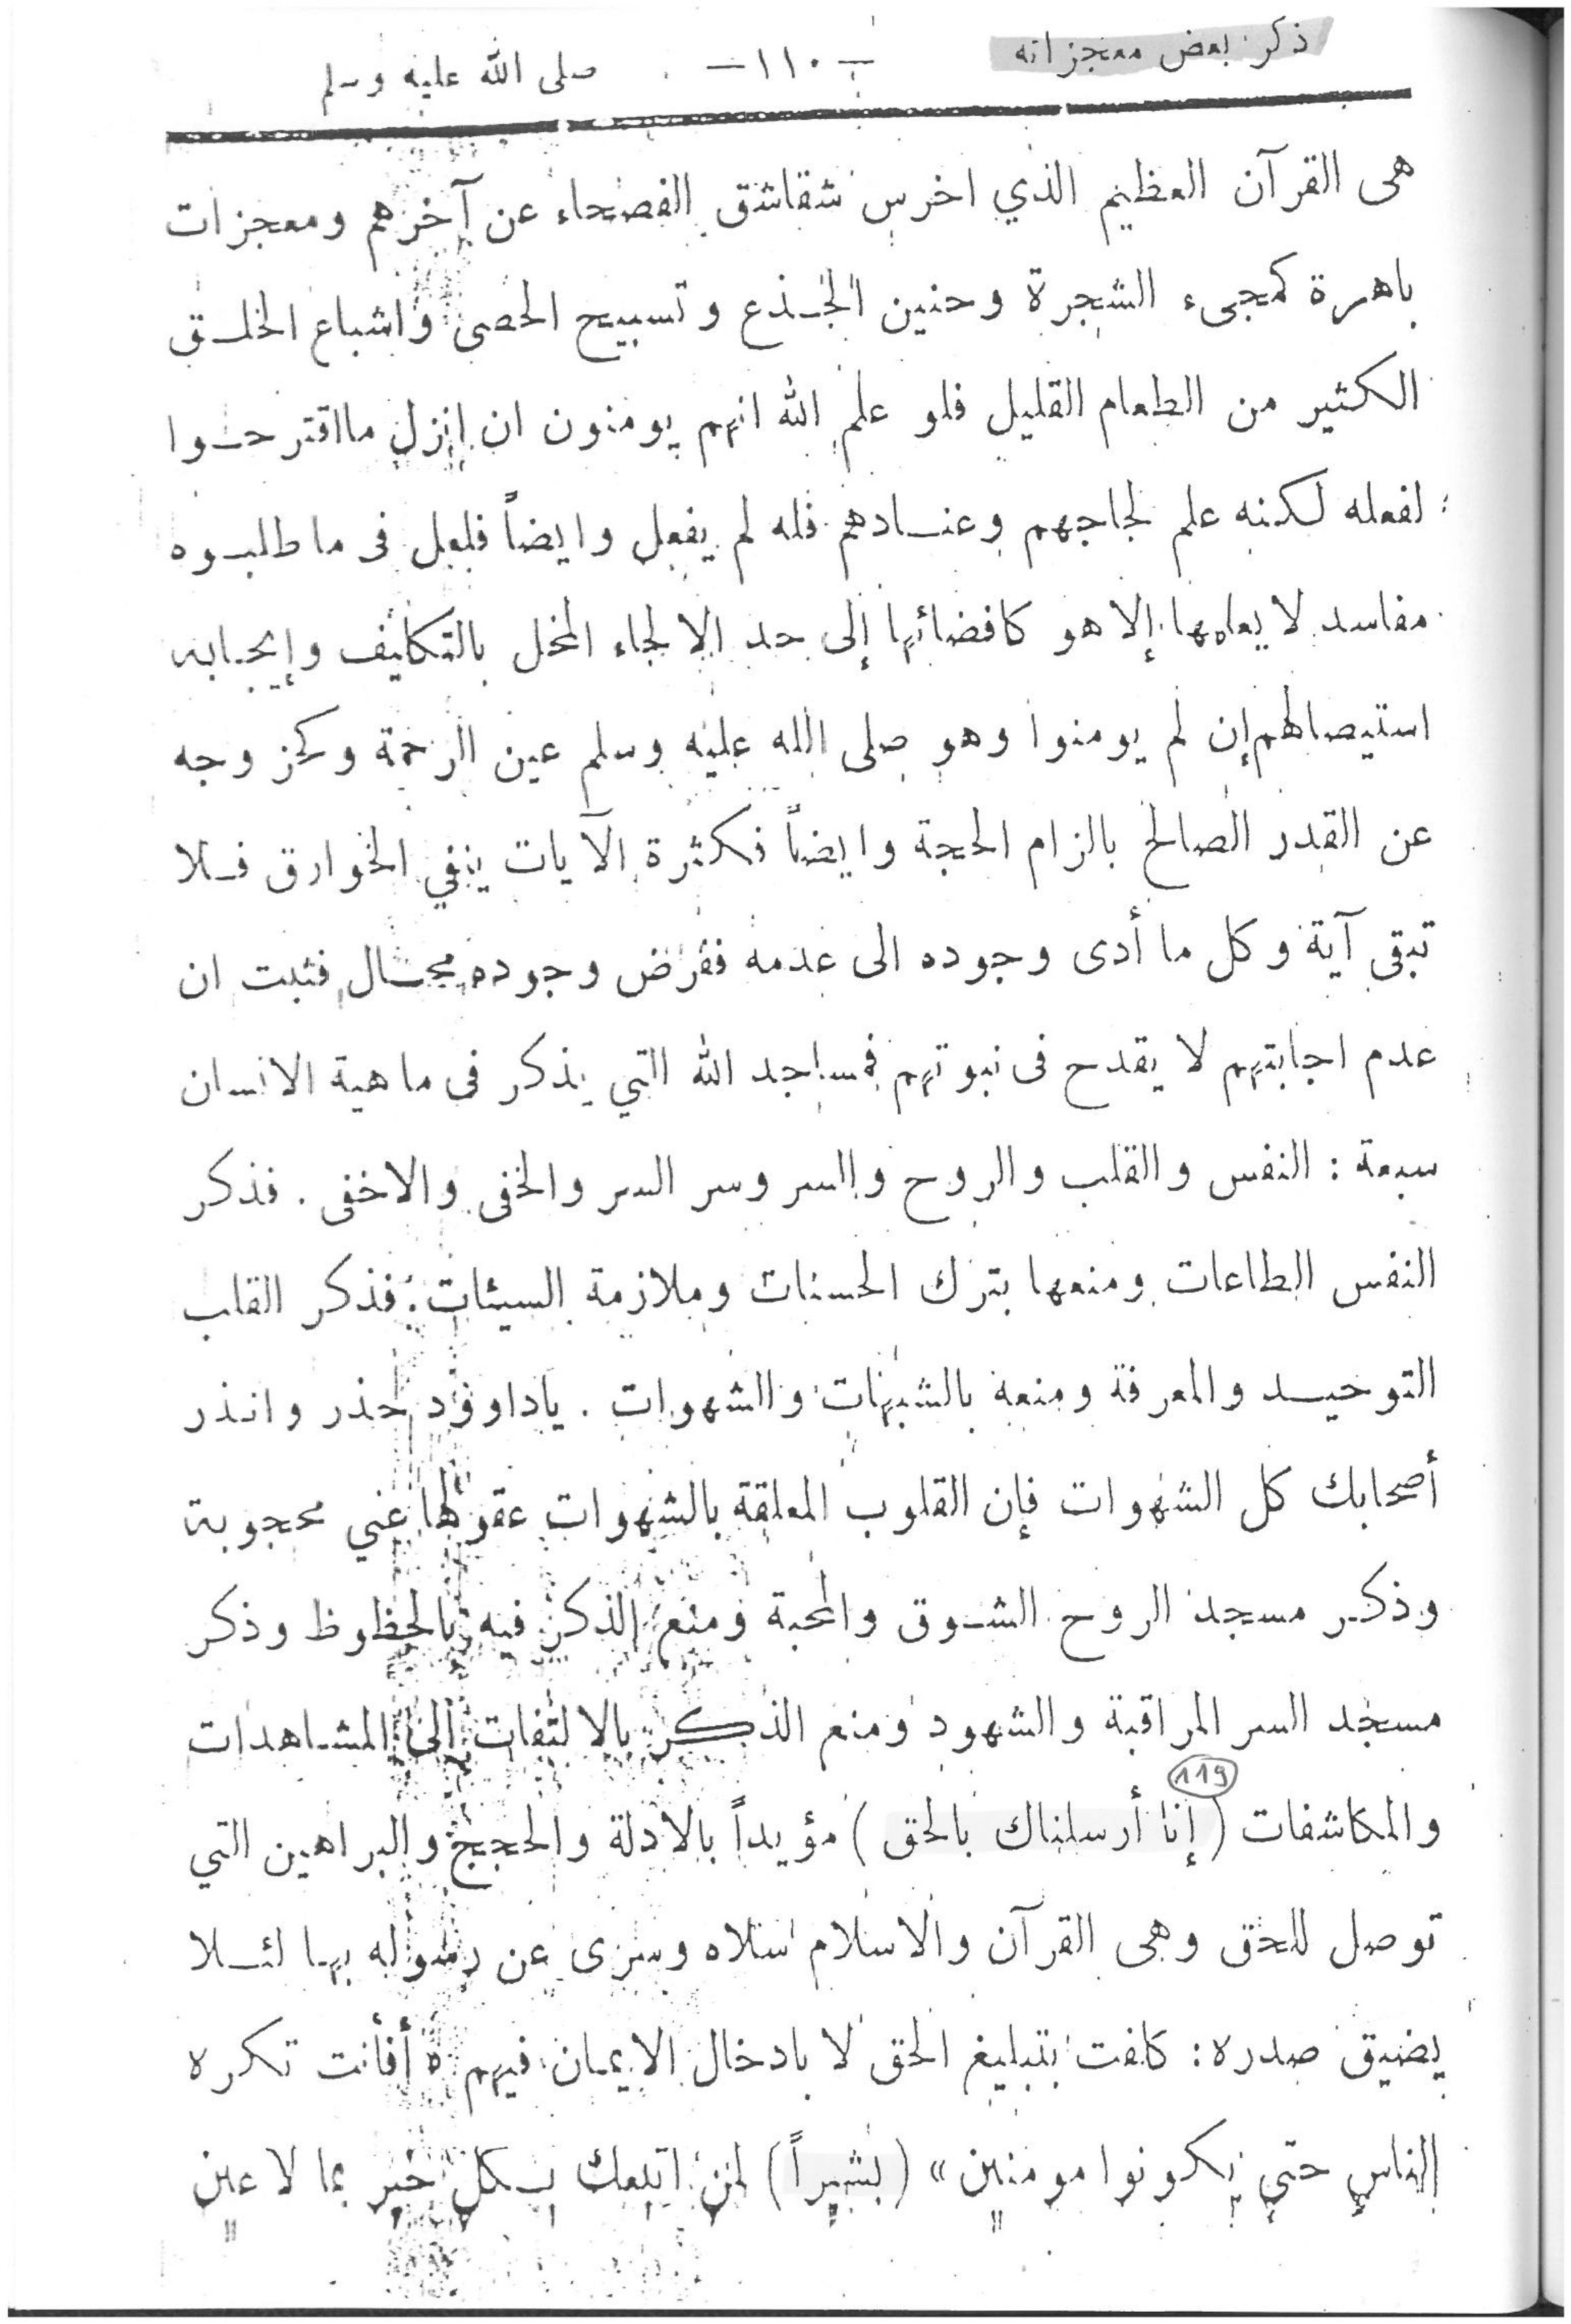 ذكر بعض معجزاته
-١١٠-
صلى الله عليه وسلم
هى القرآن العظيم الذي اخرس شقاشق الفصحاء عن آخرهم ومعجزات
باهرة كمجىء الشجرة وحنين الجذع وتسبيح الحصى واشباع الخلق
الكثير من الطعام القليل فلو علم الله انهم يومنون ان انزل مااقترحوا
لفعله لكنه علم لجاجهم وعنادهم فله لم يفعل وايضاً فلعل فى ما طلبوه
مفاسد لا يعلمها إلا هو كافضائها إلى حد الالجاء المخل بالتكليف وإيجابه
استيصالهم إن لم يومنوا وهو صلى الله عليه وسلم عين الرحمة وكخزوجه
عن القدر الصالح بالزام الحجة وايضاً فكثرة الآيات ينفي الخوارق فلا
تبقى آية وكل ما أدى وجوده الى عدمه ففرض وجوده محال فثبت ان
عدم اجابتهم لا يقدح فى نبوتهم فمساجد الله التي يذكر فى ماهية الانسان
سبعة : النفس والقلب والروح والسر وسر السر والخفى والاخفى . فذكر
النفس الطاعات ومنعها بترك الحسنات وملازمة السيئات : فذكر القلب
التوحيد والمعرفة ومنعه بالشبهات والشهوات . ياداوود حذر وانذر
أصحابك كل الشهوات فإن القلوب المعلقة بالشهوات عقولها عني محجوبة
وذكر مسجد الروح الشوق والمحبة ومنع الذكر فيه بالحظوظ وذكر
مسجد السر المراقبة والشهود ومنع الذكر بالالتفات إلى المشاهدات
119
والمكاشفات (إنا أرسلناك بالحق) مؤيداً بالادلة والحجج والبراهين التي
توصل للحق وهى القرآن والاسلام سلاه وسرى عن رسوله بها لئلا
يضيق صدره : كلفت بتبليغ الحق لا بادخال الايمان فيهم « أفأنت تكره
الناس حتى يكونوا مومنين » (بشيراً) لمن اتبعك بكل خير بما لا عين